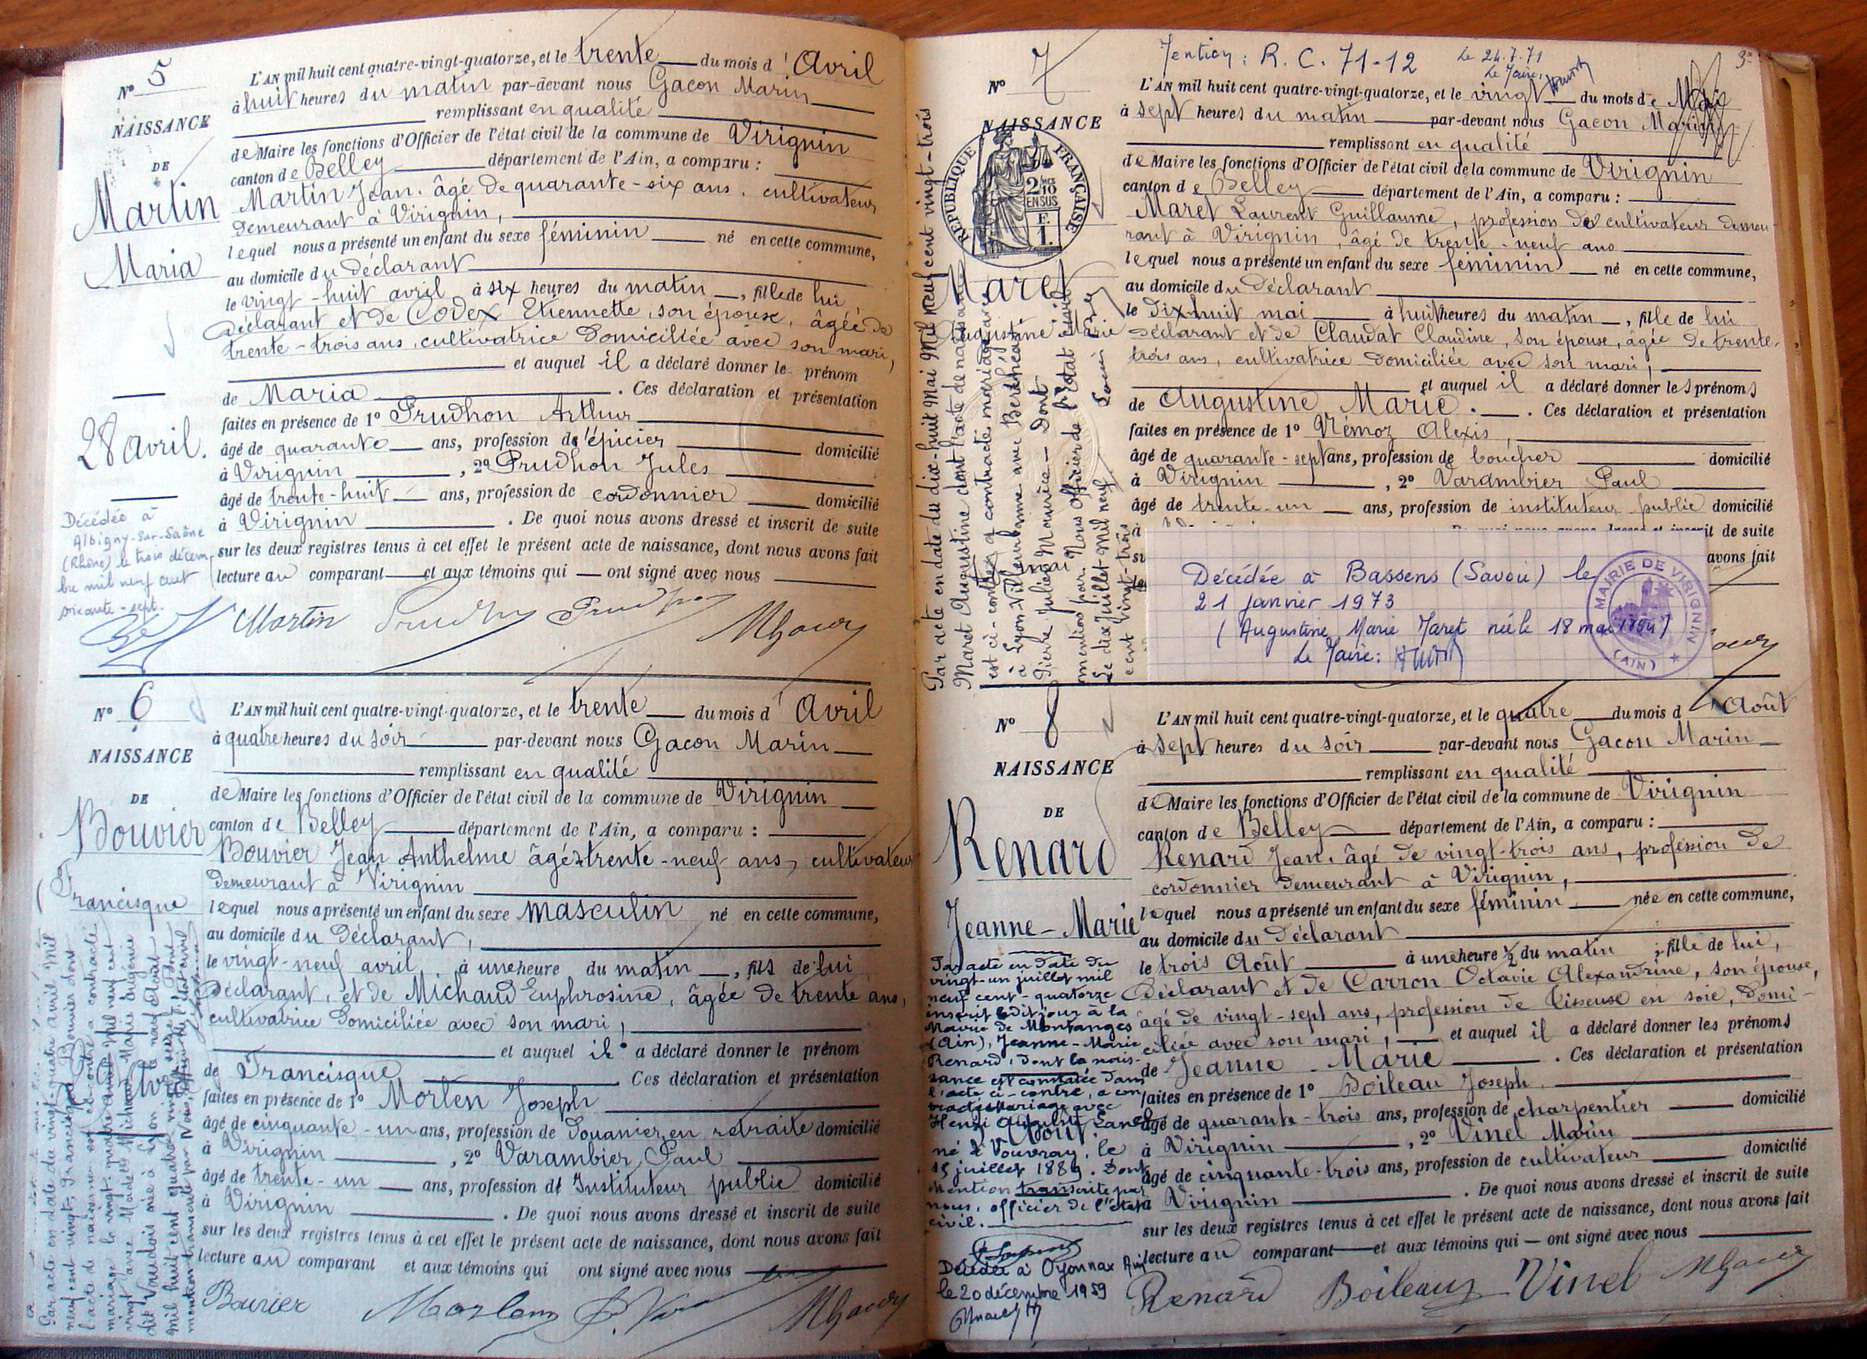 N° 5
NAISSANCE
DE
Martin
Maria
28 avril.
Décédée à
Albigny-sur-Saône
(Rhône) le trois décem
bre mil neuf cent
soixante-sept.
L'AN mil huit cent quatre-vingt-quatorze, et le trente du mois d'Avril
à huit heures du matin par-devant nous Gacon Marin
remplissant en qualité
de Maire les fonctions d'Officier de l'état civil de la commune de Virignin
canton de Belley département de l'Ain, a comparu :
Martin Jean, âgé de quarante-six ans, cultivateur
demeurant à Virignin,
lequel nous a présenté un enfant du sexe féminin né en cette commune,
au domicile du déclarant
le vingt-huit avril à six heures du matin, fille de lui
déclarant et de Codex Etiennette, son épouse, âgée de
trente-trois ans, cultivatrice domiciliée avec son mari,
et auquel il a déclaré donner le prénom
de Maria. Ces déclaration et présentation
faites en présence de 1° Prudhon Arthur
âgé de quarante ans, profession d'épicier domicilié
à Virignin, 2° Prudhon Jules
âgé de trente-huit ans, profession de cordonnier domicilié
à Virignin. De quoi nous avons dressé et inscrit de suite
sur les deux registres tenus à cet effet le présent acte de naissance, dont nous avons fait
lecture au comparant et aux témoins qui ont signé avec nous
Martin Prudhon Prudhon MGacon
N° 6
NAISSANCE
DE
Bouvier
Francisque
L'AN mil huit cent quatre-vingt-quatorze, et le trente du mois d'Avril
à quatre heures du soir par-devant nous Gacon Marin
remplissant en qualité
de Maire les fonctions d'Officier de l'état civil de la commune de Virignin
canton de Belley département de l'Ain, a comparu :
Bouvier Jean Anthelme âgé de trente-neuf ans, cultivateur
demeurant à Virignin
lequel nous a présenté un enfant du sexe masculin né en cette commune,
au domicile du déclarant,
le vingt-neuf avril à une heure du matin, fils de lui
déclarant, et de Michaud Euphrosine, âgée de trente ans,
cultivatrice domiciliée avec son mari,
et auquel il a déclaré donner le prénom
de Francisque Ces déclaration et présentation
faites en présence de 1° Morten Joseph
âgé de cinquante-un ans, profession de Douanier en retraite domicilié
à Virignin, 2° Varambier Paul
âgé de trente-un ans, profession d'Instituteur public domicilié
à Virignin. De quoi nous avons dressé et inscrit de suite
sur les deux registres tenus à cet effet le présent acte de naissance, dont nous avons fait
lecture au comparant et aux témoins qui ont signé avec nous
Bouvier Morten MGacon
Mention : R. C. 71-12
Le 24.7.71
Le Maire,
3
N° 7
NAISSANCE
RÉPUBLIQUE FRANÇAISE
2/10 EN SUS
F.
1.
Maret
Augustine Marie
18 mai
Par acte en date du dix-huit Mai Mil neuf cent vingt-trois
Maret Augustine dont l'acte de naissance
est ci-contre, a contracté mariage
à Lyon-Villeurbanne avec
Pierre Julien Maurice - Dont
mention par Nous Officier de l'Etat civil
Le dix Juillet Mil neuf
cent vingt-trois
L'AN mil huit cent quatre-vingt-quatorze, et le vingt du mois de Mai
à sept heures du matin par-devant nous Gacon Marin
remplissant en qualité
de Maire les fonctions d'Officier de l'état civil de la commune de Virignin
canton de Belley département de l'Ain, a comparu :
Maret Laurent Guillaume, profession de cultivateur demeu
rant à Virignin, âgé de trente-neuf ans
lequel nous a présenté un enfant du sexe féminin né en cette commune,
au domicile du déclarant
le dix-huit mai à huit heures du matin, fille de lui
déclarant et de Claudat Claudine, son épouse, âgée de trente-
trois ans, cultivatrice domiciliée avec son mari,
et auquel il a déclaré donner les prénoms
de Augustine Marie. Ces déclaration et présentation
faites en présence de 1° Vémoz Alexis,
âgé de quarante-sept ans, profession de boucher domicilié
à Virignin, 2° Varambier Paul
âgé de trente-un ans, profession de instituteur public domicilié
à
it de suite
avons fait
Décédée à Bassens (Savoie) le
21 janvier 1973
(Augustine Marie Maret née le 18 mai 1894)
Le Maire :
MAIRIE DE VIRIGNIN
(AIN)
N° 8
NAISSANCE
DE
Renard
Jeanne-Marie
3 Août
Par acte en date du
vingt-un juillet mil
neuf cent-quatorze
inscrit ledit jour à la
Mairie de Montanges
(Ain), Jeanne-Marie
Renard, dont la nais-
sance est constatée dans
l'acte ci-contre, a con
tracté Mariage avec
né à Vouvray, le
15 juillet 1889. Dont
mention transcrite par
nous, officier de l'état
civil.
Décédée à Oyonnax Ain
le 20 décembre 1959
L'AN mil huit cent quatre-vingt-quatorze, et le quatre du mois d'Août
à sept heures du soir par-devant nous Gacon Marin
remplissant en qualité
de Maire les fonctions d'Officier de l'état civil de la commune de Virignin
canton de Belley département de l'Ain, a comparu :
Renard Jean, âgé de vingt-trois ans, profession de
cordonnier demeurant à Virignin,
lequel nous a présenté un enfant du sexe féminin née en cette commune,
au domicile du déclarant
le trois Août à une heure ½ du matin, fille de lui,
déclarant et de Carron Octavie Alexandrine, son épouse,
âgé de vingt-sept ans, profession de tisseuse en soie, domi-
ciliée avec son mari, et auquel il a déclaré donner les prénoms
de Jeanne-Marie. Ces déclaration et présentation
faites en présence de 1° Boileau Joseph
âgé de quarante-trois ans, profession de charpentier domicilié
à Virignin, 2° Vinel Marin
âgé de cinquante-trois ans, profession de cultivateur domicilié
à Virignin. De quoi nous avons dressé et inscrit de suite
sur les deux registres tenus à cet effet le présent acte de naissance, dont nous avons fait
lecture au comparant et aux témoins qui ont signé avec nous
Renard Boileau Vinel MGacon